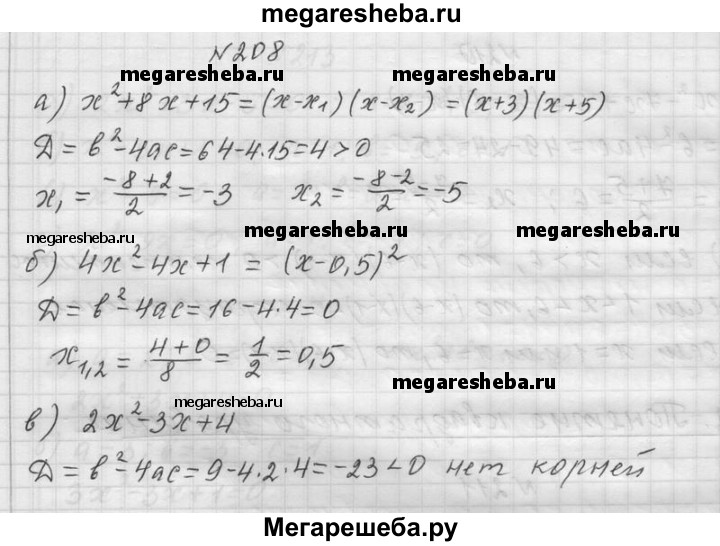 megaresheba.ru
№208
megaresheba.ru megaresheba.ru
а) x²+8x+15=(x-x₁)(x-x₂)=(x+3)(x+5)
Д=b²-4ac=64-4.15=4>0
x₁ = (-8+2)/2 = -3 x₂ = (-8-2)/2 = -5
megaresheba.ru megaresheba.ru megaresheba.ru
б) 4x²-4x+1 = (x-0,5)²
Д=b²-4ac=16-4.4=0
x₁,₂ = (4+0)/8 = 1/2 = 0,5
megaresheba.ru megaresheba.ru
в) 2x²-3x+4
Д=b²-4ac=9-4.2.4=-23<0 нет корней
Мегарешеба.ру